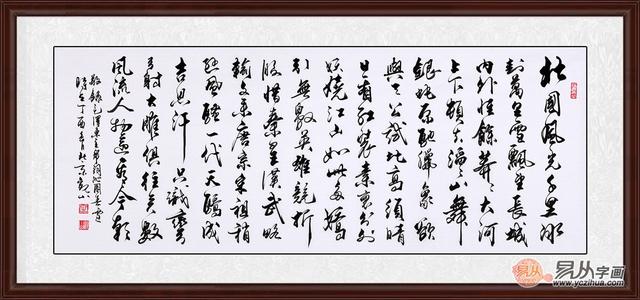 北國風光千里冰
封萬里雪飄望長城
内外惟餘莽莽大河
上下頓失滔滔山舞
銀蛇原馳蠟象欲
與天公試比高須晴
日看紅裝素裹分外
妖嬈江山如此多嬌
引無數英雄競折
腰惜秦皇漢武略
輸文采唐宗宋祖稍
遜風騷一代天驕成
吉思汗只識彎
弓射大雕俱往矣數
風流人物還看今朝
敬錄毛澤東主席詞沁園春雪
時在丁酉年
易从
易从字画
www.yczihua.com